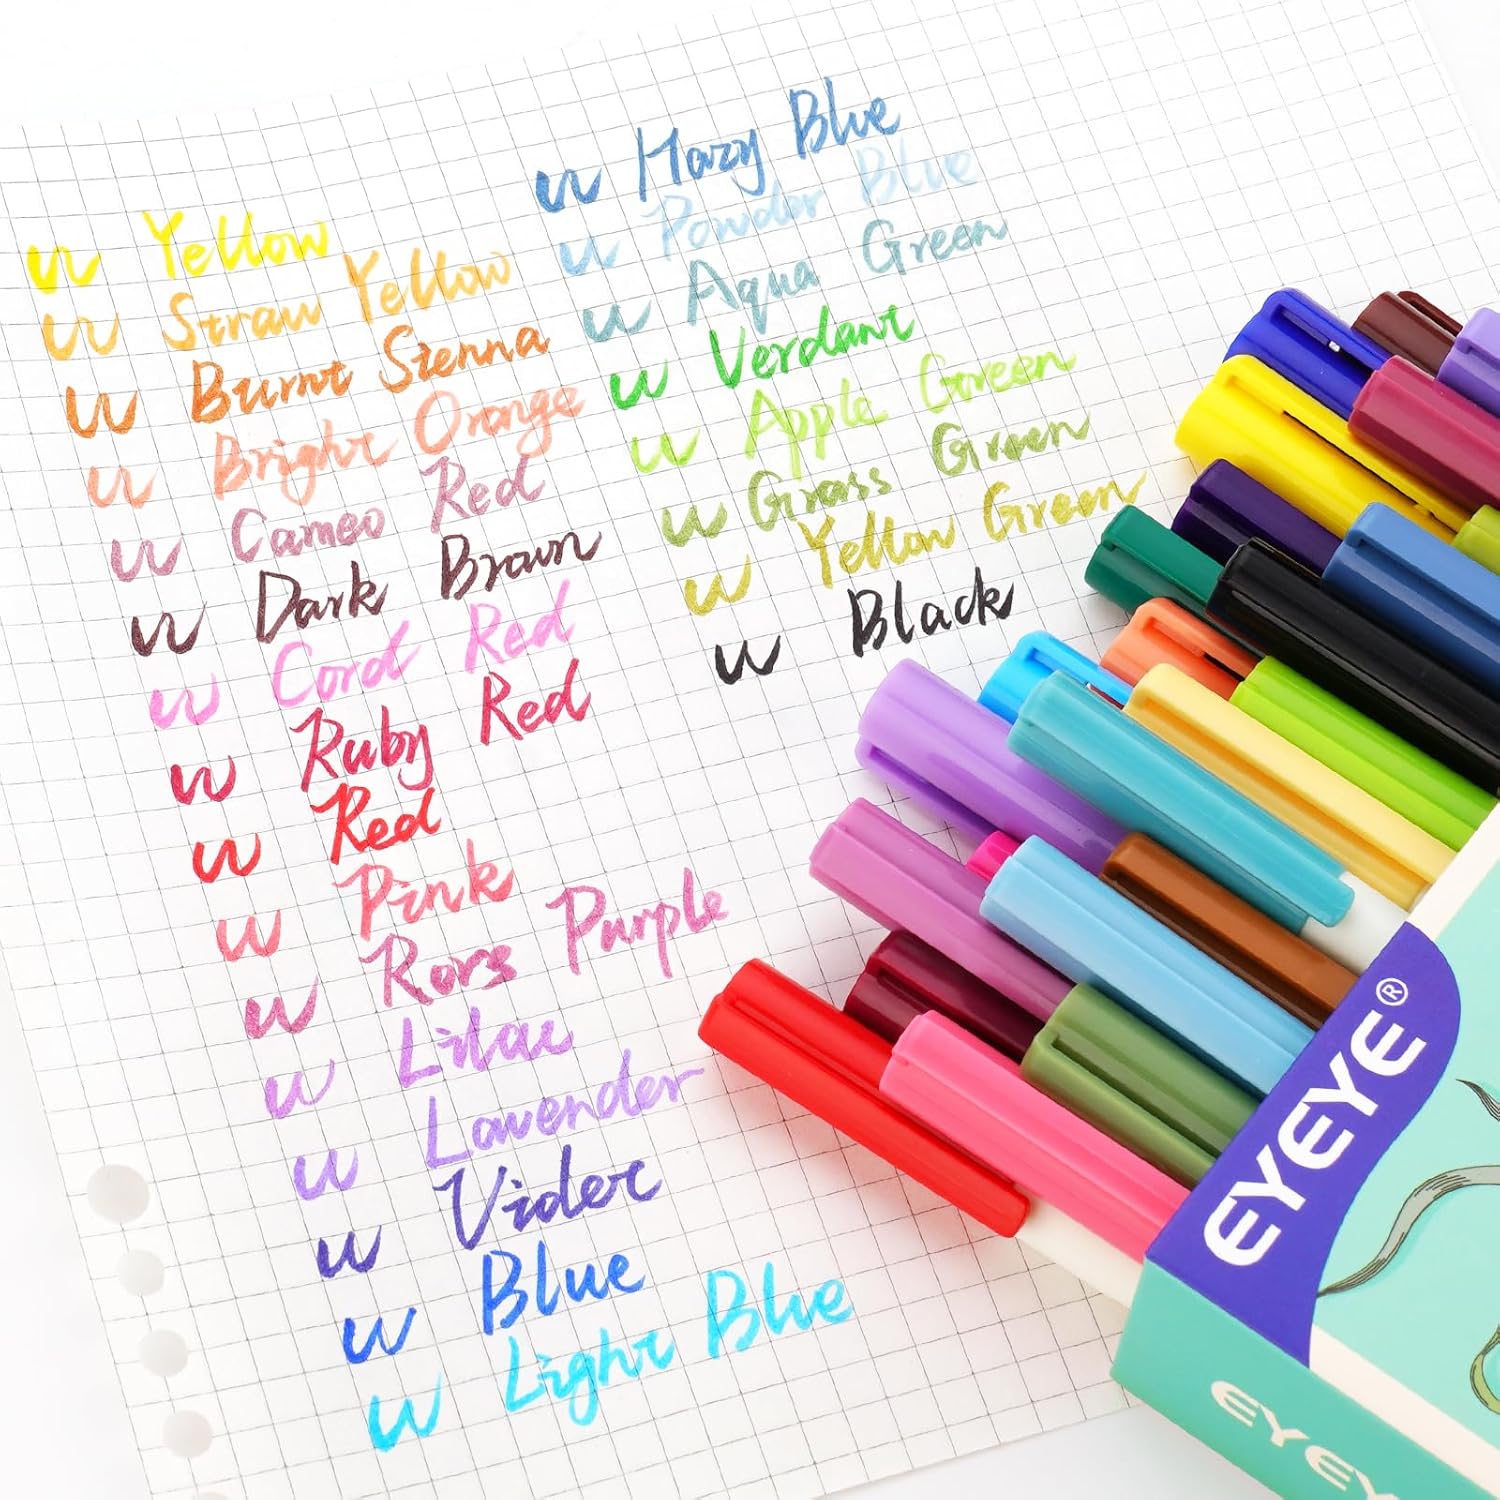 Yellow
Straw Yellow
Burnt Sienna
Bright Orange
Cameo Red
Dark Brown
Corol Red
Ruby Red
Red
Pink
Rors Purple
Lilac
Lavender
Violet
Blue
Light Blue
Hazy Blue
Powder Blue
Aqua Green
Verdant
Apple Green
Grass Green
Yellow Green
Black
EYEYE®
EYEYE